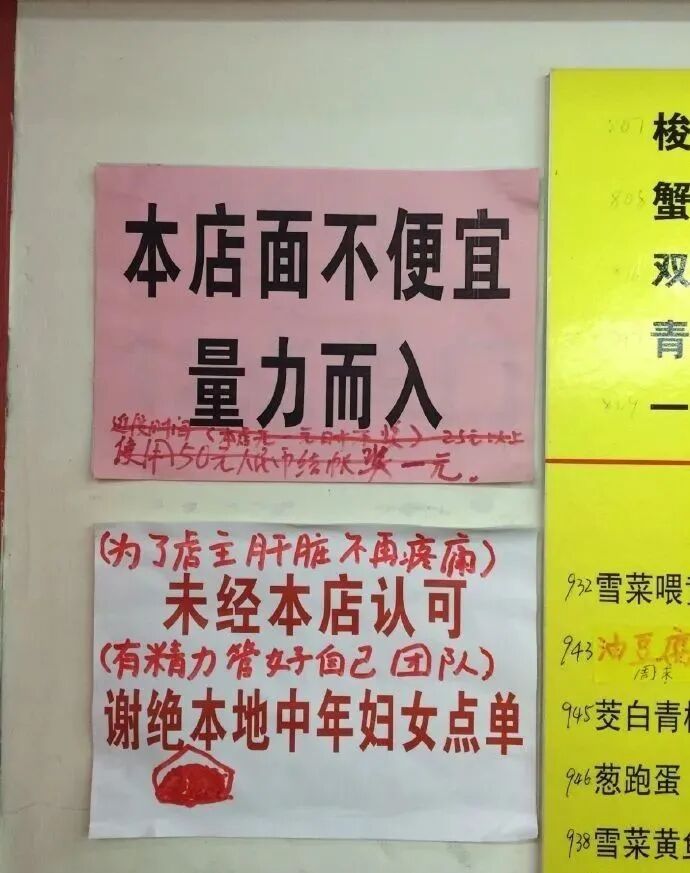 本店面不便宜
量力而入
使用50元人民币结帐 一元.
(为了店主肝脏不再疼痛)
未经本店认可
(有精力管好自己团队)
谢绝本地中年妇女点单
807 梭
808 蟹
双
青
一
932 雪菜
943 油豆腐
周末
945 茭白青
946 葱跑蛋
938 雪菜黄鱼